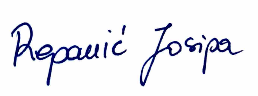 Repanić Josipa